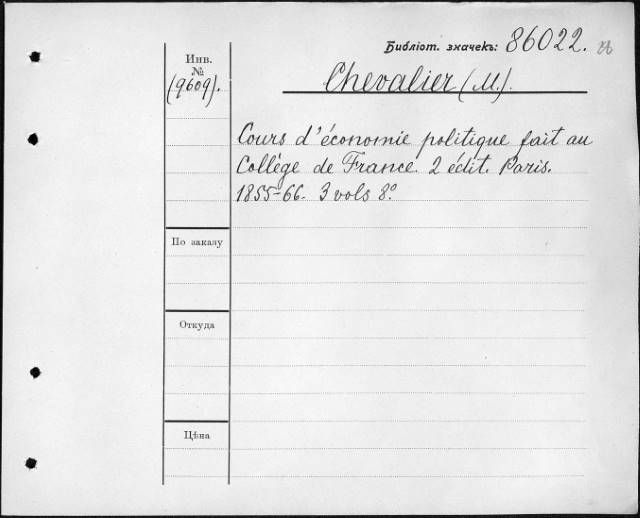 Библіот. значекъ: 86022.
Инв.
№
(9609).
Chevalier (M.).
Cours d'économie politique fait au
Collège de France. 2 édit. Paris.
1855-66. 3 vols 8º.
По заказу
Откуда
Цѣна